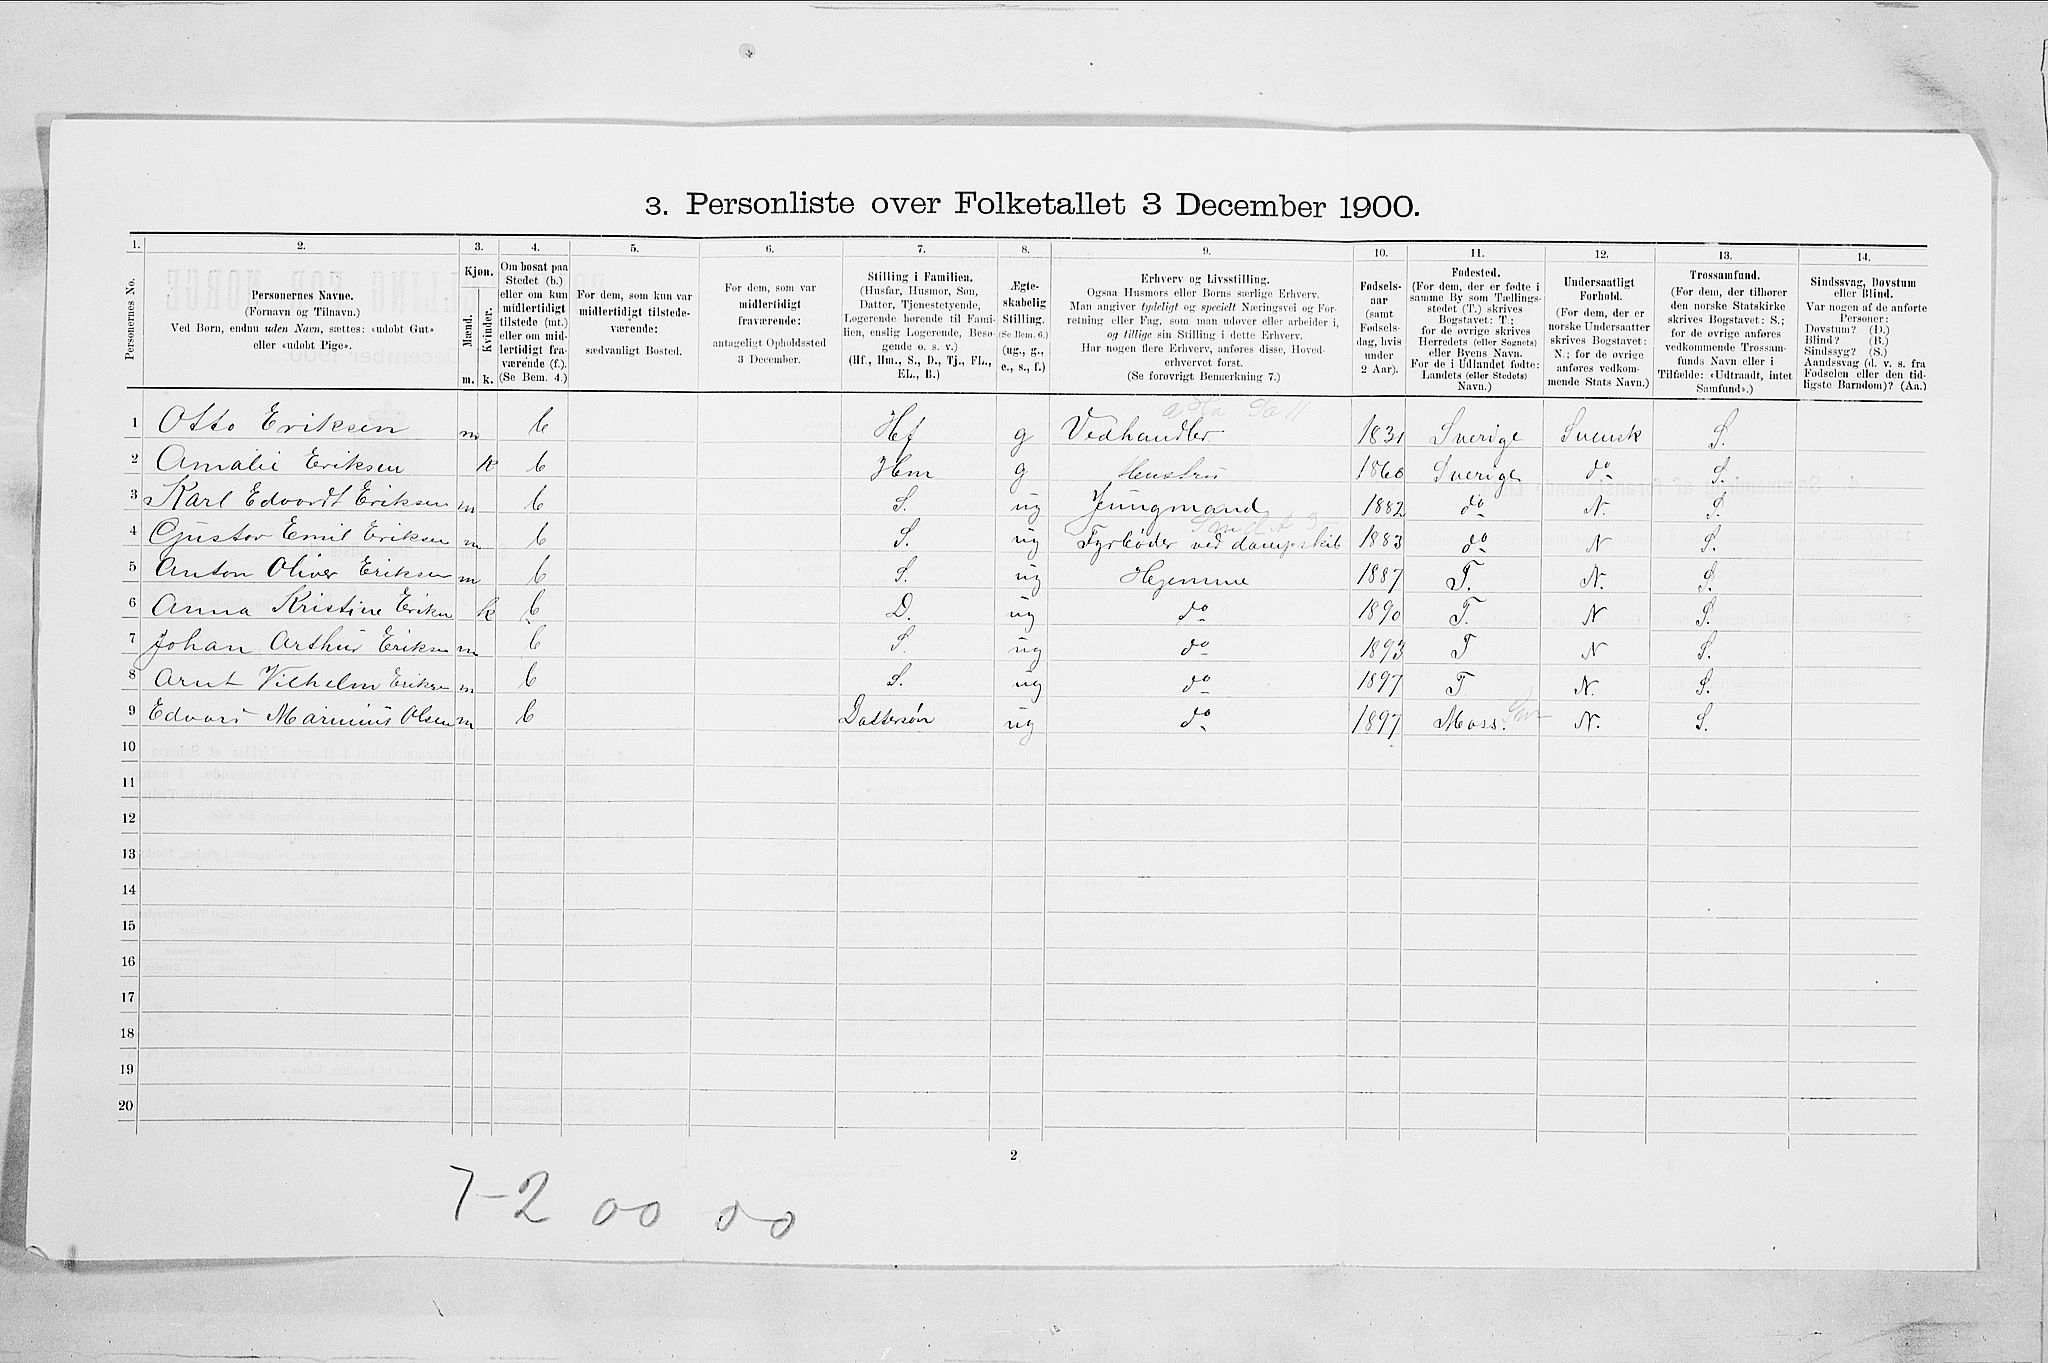 3. Personliste over Folketallet 3 December 1900.
1. 2. 3. 4. 5. 6. 7. 8. 9. 10. 11. 12. 13. 14.
Personernes No.
Personernes Navne.
(Fornavn og Tilnavn.)
Ved Børn, endnu uden Navn, sættes: «udøbt Gut»
eller «udøbt Pige».
Kjøn.
Mænd.
Kvinder.
m. k.
Om bosat paa
Stedet (b.)
eller om kun
midlertidigt
tilstede (mt.)
eller om mid-
lertidigt fra-
værende (f.).
(Se Bem. 4.)
For dem, som kun var
midlertidigt tilstede-
værende:
sædvanligt Bosted.
For dem, som var
midlertidigt
fraværende:
antageligt Opholdssted
3 December.
Stilling i Familien.
(Husfar, Husmor, Søn,
Datter, Tjenestetyende,
Logerende hørende til Fami-
lien, enslig Logerende, Besø-
gende o. s. v.)
(Hf., Hm., S., D., Tj., FL.,
EL., B.)
Ægte-
skabelig
Stilling.
(Se Bem. 6.)
(ug., g.,
e., s., f.)
Erhverv og Livsstilling.
Ogsaa Husmors eller Børns særlige Erhverv.
Man angiver tydeligt og specielt Næringsvei og For-
retning eller Fag, som man udøver eller arbeider i,
og tillige sin Stilling i dette Erhverv.
Har nogen flere Erhverv, anføres disse, Hoved-
erhvervet først.
(Se forøvrigt Bemærkning 7.)
Fødsels-
aar
(samt
Fødsels-
dag, hvis
under
2 Aar).
Fødested.
(For dem, der er fødte i
samme By som Tællings-
stedet (T.) skrives
Bogstavet: T.;
for de øvrige skrives
Herredets (eller Sognets)
eller Byens Navn.
For de i Udlandet fødte:
Landets (eller Stedets)
Navn.)
Undersaatligt
Forhold.
(For dem, der er
norske Undersaatter
skrives Bogstavet:
N.; for de øvrige
anføres vedkom-
mende Stats Navn.)
Trossamfund.
(For dem, der tilhører
den norske Statskirke
skrives Bogstavet: S.;
for de øvrige anføres
vedkommende Trossam-
funds Navn eller i
Tilfælde: «Udtraadt, intet
Samfund».)
Sindssvag, Døvstum
eller Blind.
Var nogen af de anførte
Personer:
Døvstum? (D.)
Blind? (B.)
Sindssyg? (S.)
Aandssvag (d. v. s. fra
Fødselen eller den tid-
ligste Barndom)? (Aa.)
1 Otto Eriksen m b Hf g Vedhandler 1831 Sverige Svensk S.
2 Amalie Eriksen k b Hm g Hustru 1860 Sverige do S.
3 Karl Edvardt Eriksen m b S. ug Jungmand 1882 do N. S.
4 Gustav Emil Eriksen m b S. ug Fyrbøder ved dampskib 1883 do N S.
5 Anton Oliver Eriksen m b S. ug Hjemme 1887 T. N. S.
6 Anna Kristine Erikn k b D. ug do 1890 T. N S.
7 Johan Arthur Eriksn m b S. ug do 1893 T N S.
8 Arnt Vilhelm Eriksn m b S. ug do 1897 T N. S.
9 Edvard Marinius Olsen m b Dattersøn ug do 1897 Moss. N. S.
10
11
12
13
14
15
16
17
18
19
20
2
7-2 00 00